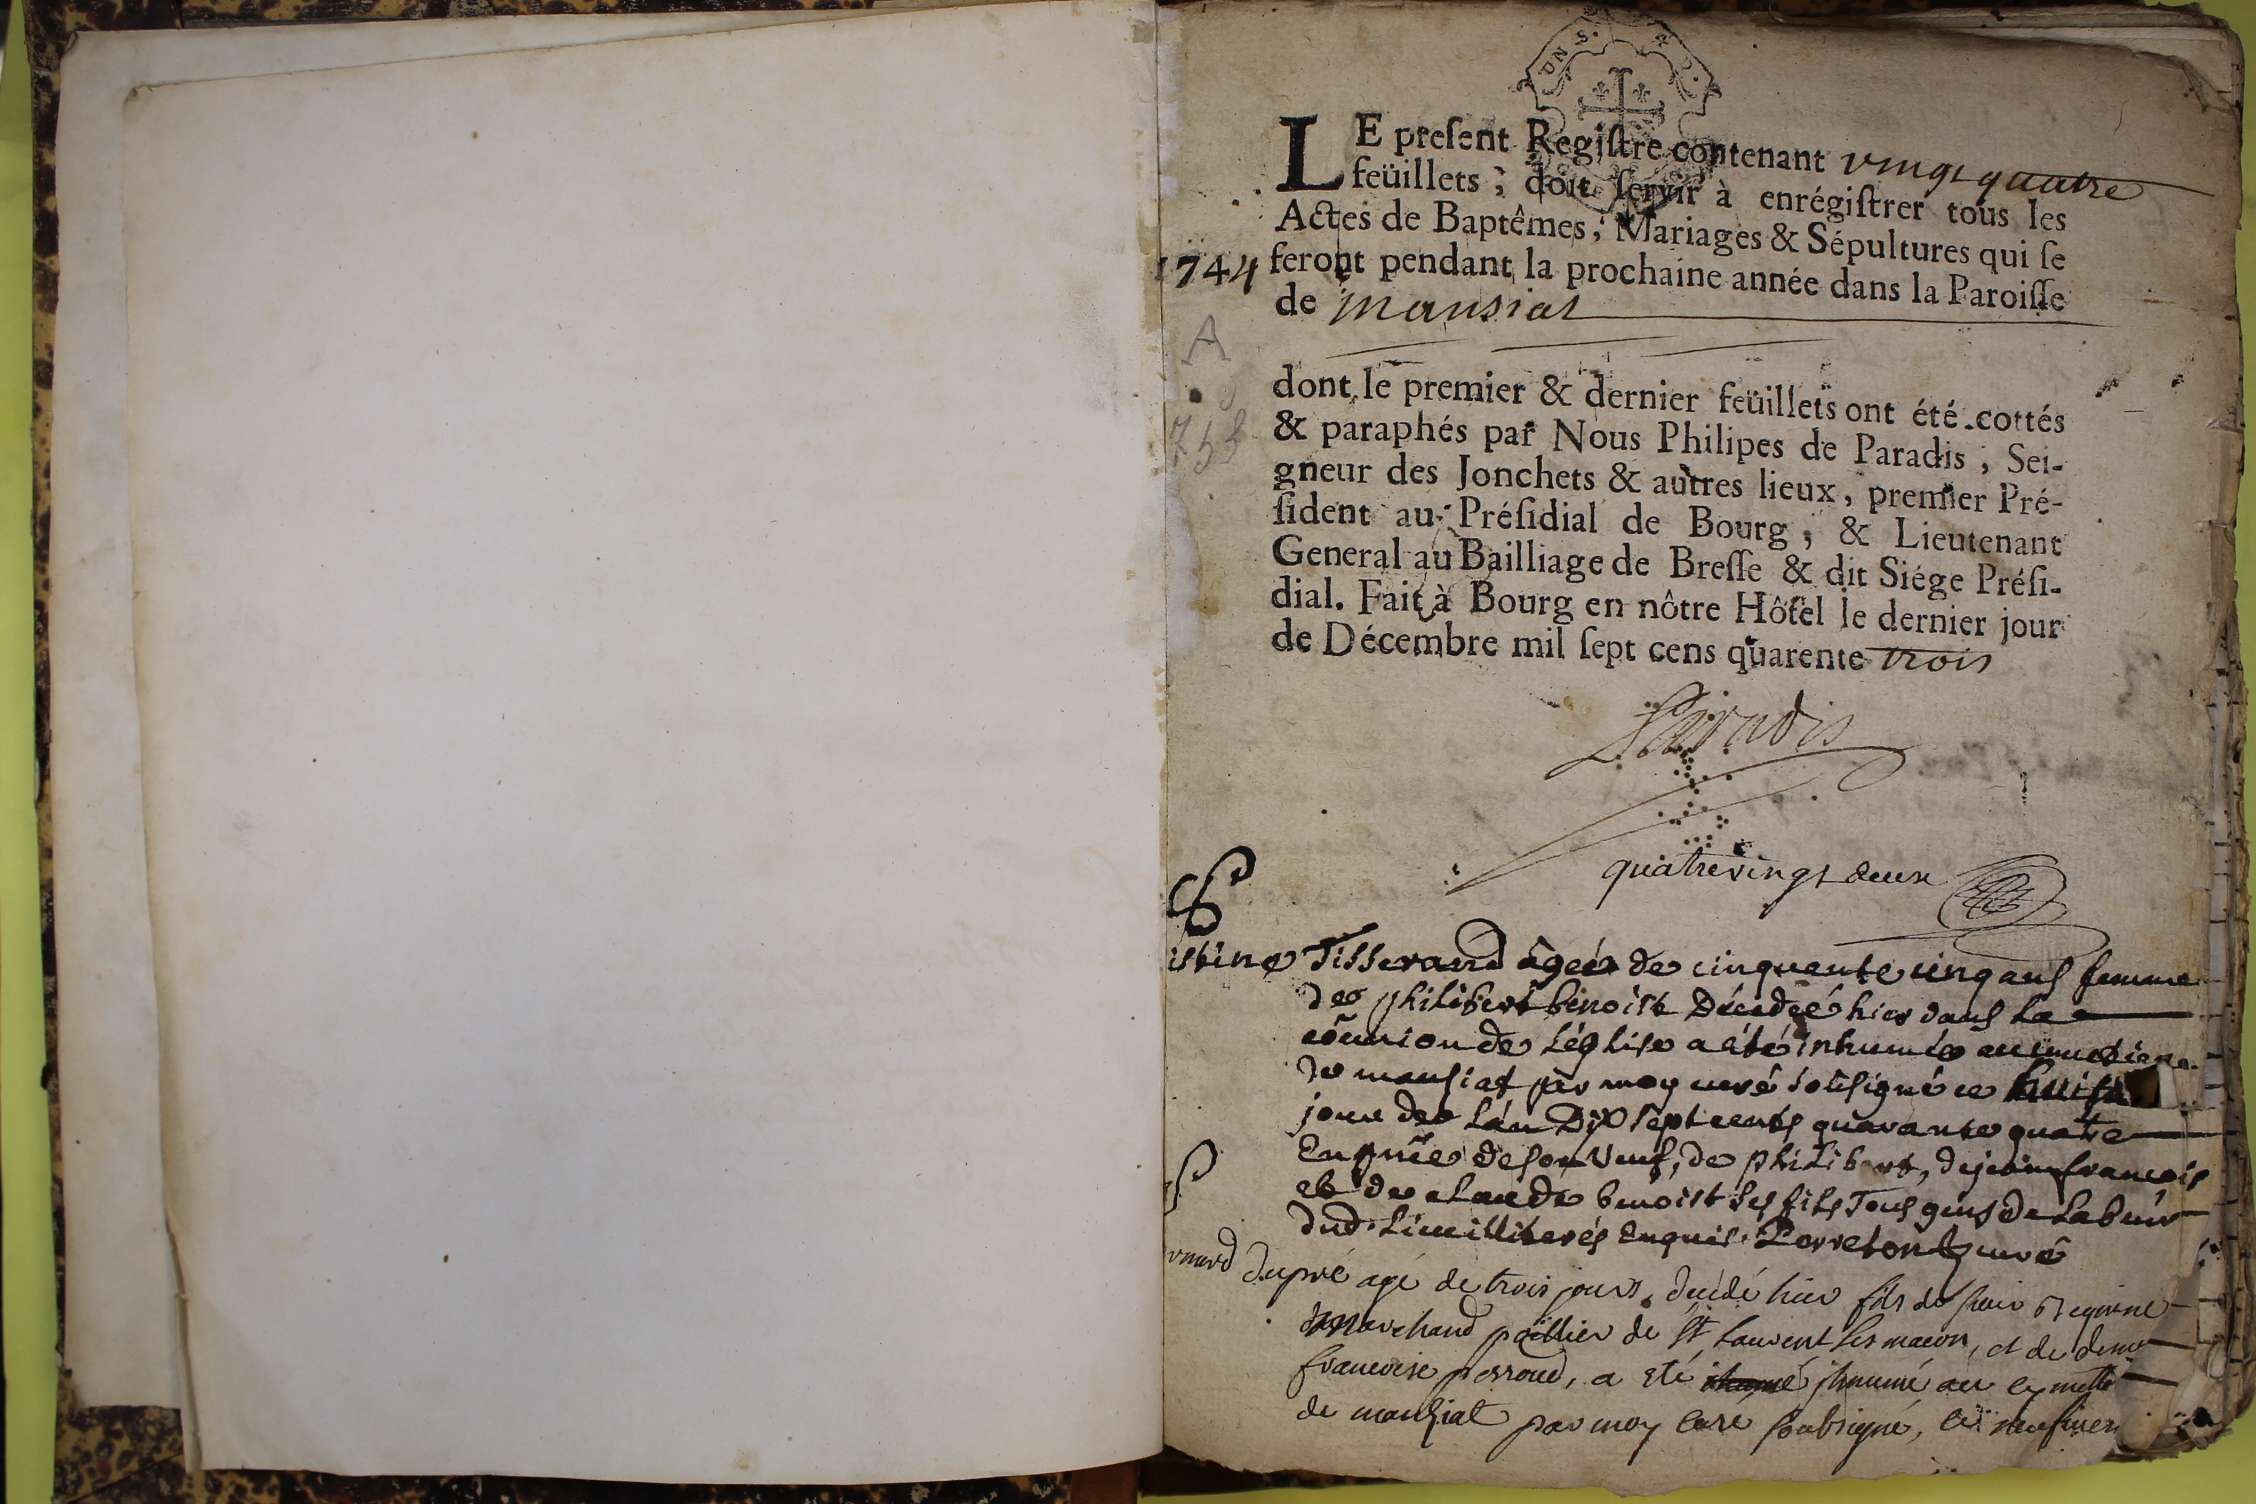 UN S. 4 D.
LE preſent Regiſtre contenant vingt quatre
feüillets ; doit ſervir à enrégiſtrer tous les
Actes de Baptêmes, Mariages & Sépultures qui ſe
1744 feront pendant la prochaine année dans la Paroiſſe
de mansiat
A
dont le premier & dernier feüillets ont été cottés
& paraphés par Nous Philipes de Paradis, Sei-
gneur des Jonchets & autres lieux, premier Pré-
ſident au Préſidial de Bourg, & Lieutenant
General au Bailliage de Breſſe & dit Siége Préſi-
dial. Fait à Bourg en nôtre Hôtel le dernier jour
de Décembre mil ſept cens quarente trois
Paradis
quatrevingt deux
S
istine Tisserand âgée de cinquante cinq ans femme
de philibert benoist Décedée hier dans la
cõunion de L'église a été inhumée au
de mansiat par moy curé soûsigné ce huit
jour de L'an Dix sept cents quarante quatre
En pñce de son veuf, de philibert, de jean francois
et de claude benoist ses fils Tous gens de Labeur
dud. Lieu illiterés Enquis. Perreton curé
S
rnard dupré agé de trois jours, décédé hier fils de sieur
marchand de St Laurent les macon, et de demo
francoise perroud, a eté jnhumé au cymett
de manziat par moy curé soubsigné, le neuf